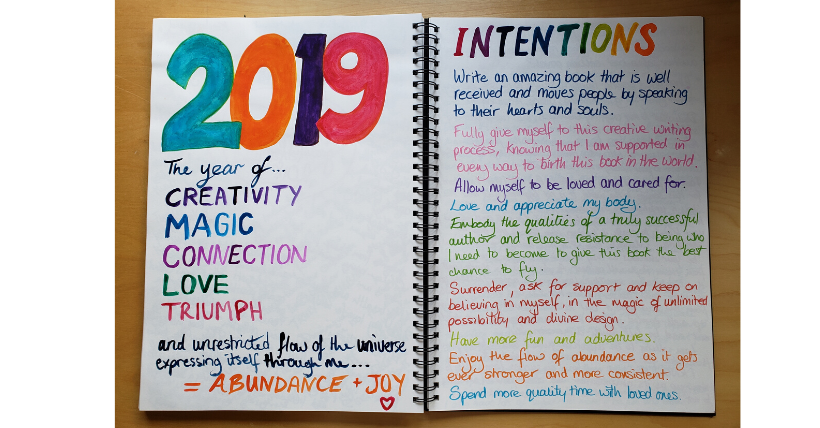 2019
The year of...
CREATIVITY
MAGIC
CONNECTION
LOVE
TRIUMPH
and unrestricted flow of the universe
expressing itself through me...
= ABUNDANCE + JOY
INTENTIONS
Write an amazing book that is well
received and moves people by speaking
to their hearts and souls.
Fully give myself to this creative writing
process, knowing that I am supported in
every way to birth this book in the world.
Allow myself to be loved and cared for.
Love and appreciate my body.
Embody the qualities of a truly successful
author and release resistance to being who
I need to become to give this book the best
chance to fly.
Surrender, ask for support and keep on
believing in myself, in the magic of unlimited
possibility and divine design.
Have more fun and adventures.
Enjoy the flow of abundance as it gets
ever stronger and more consistent.
Spend more quality time with loved ones.